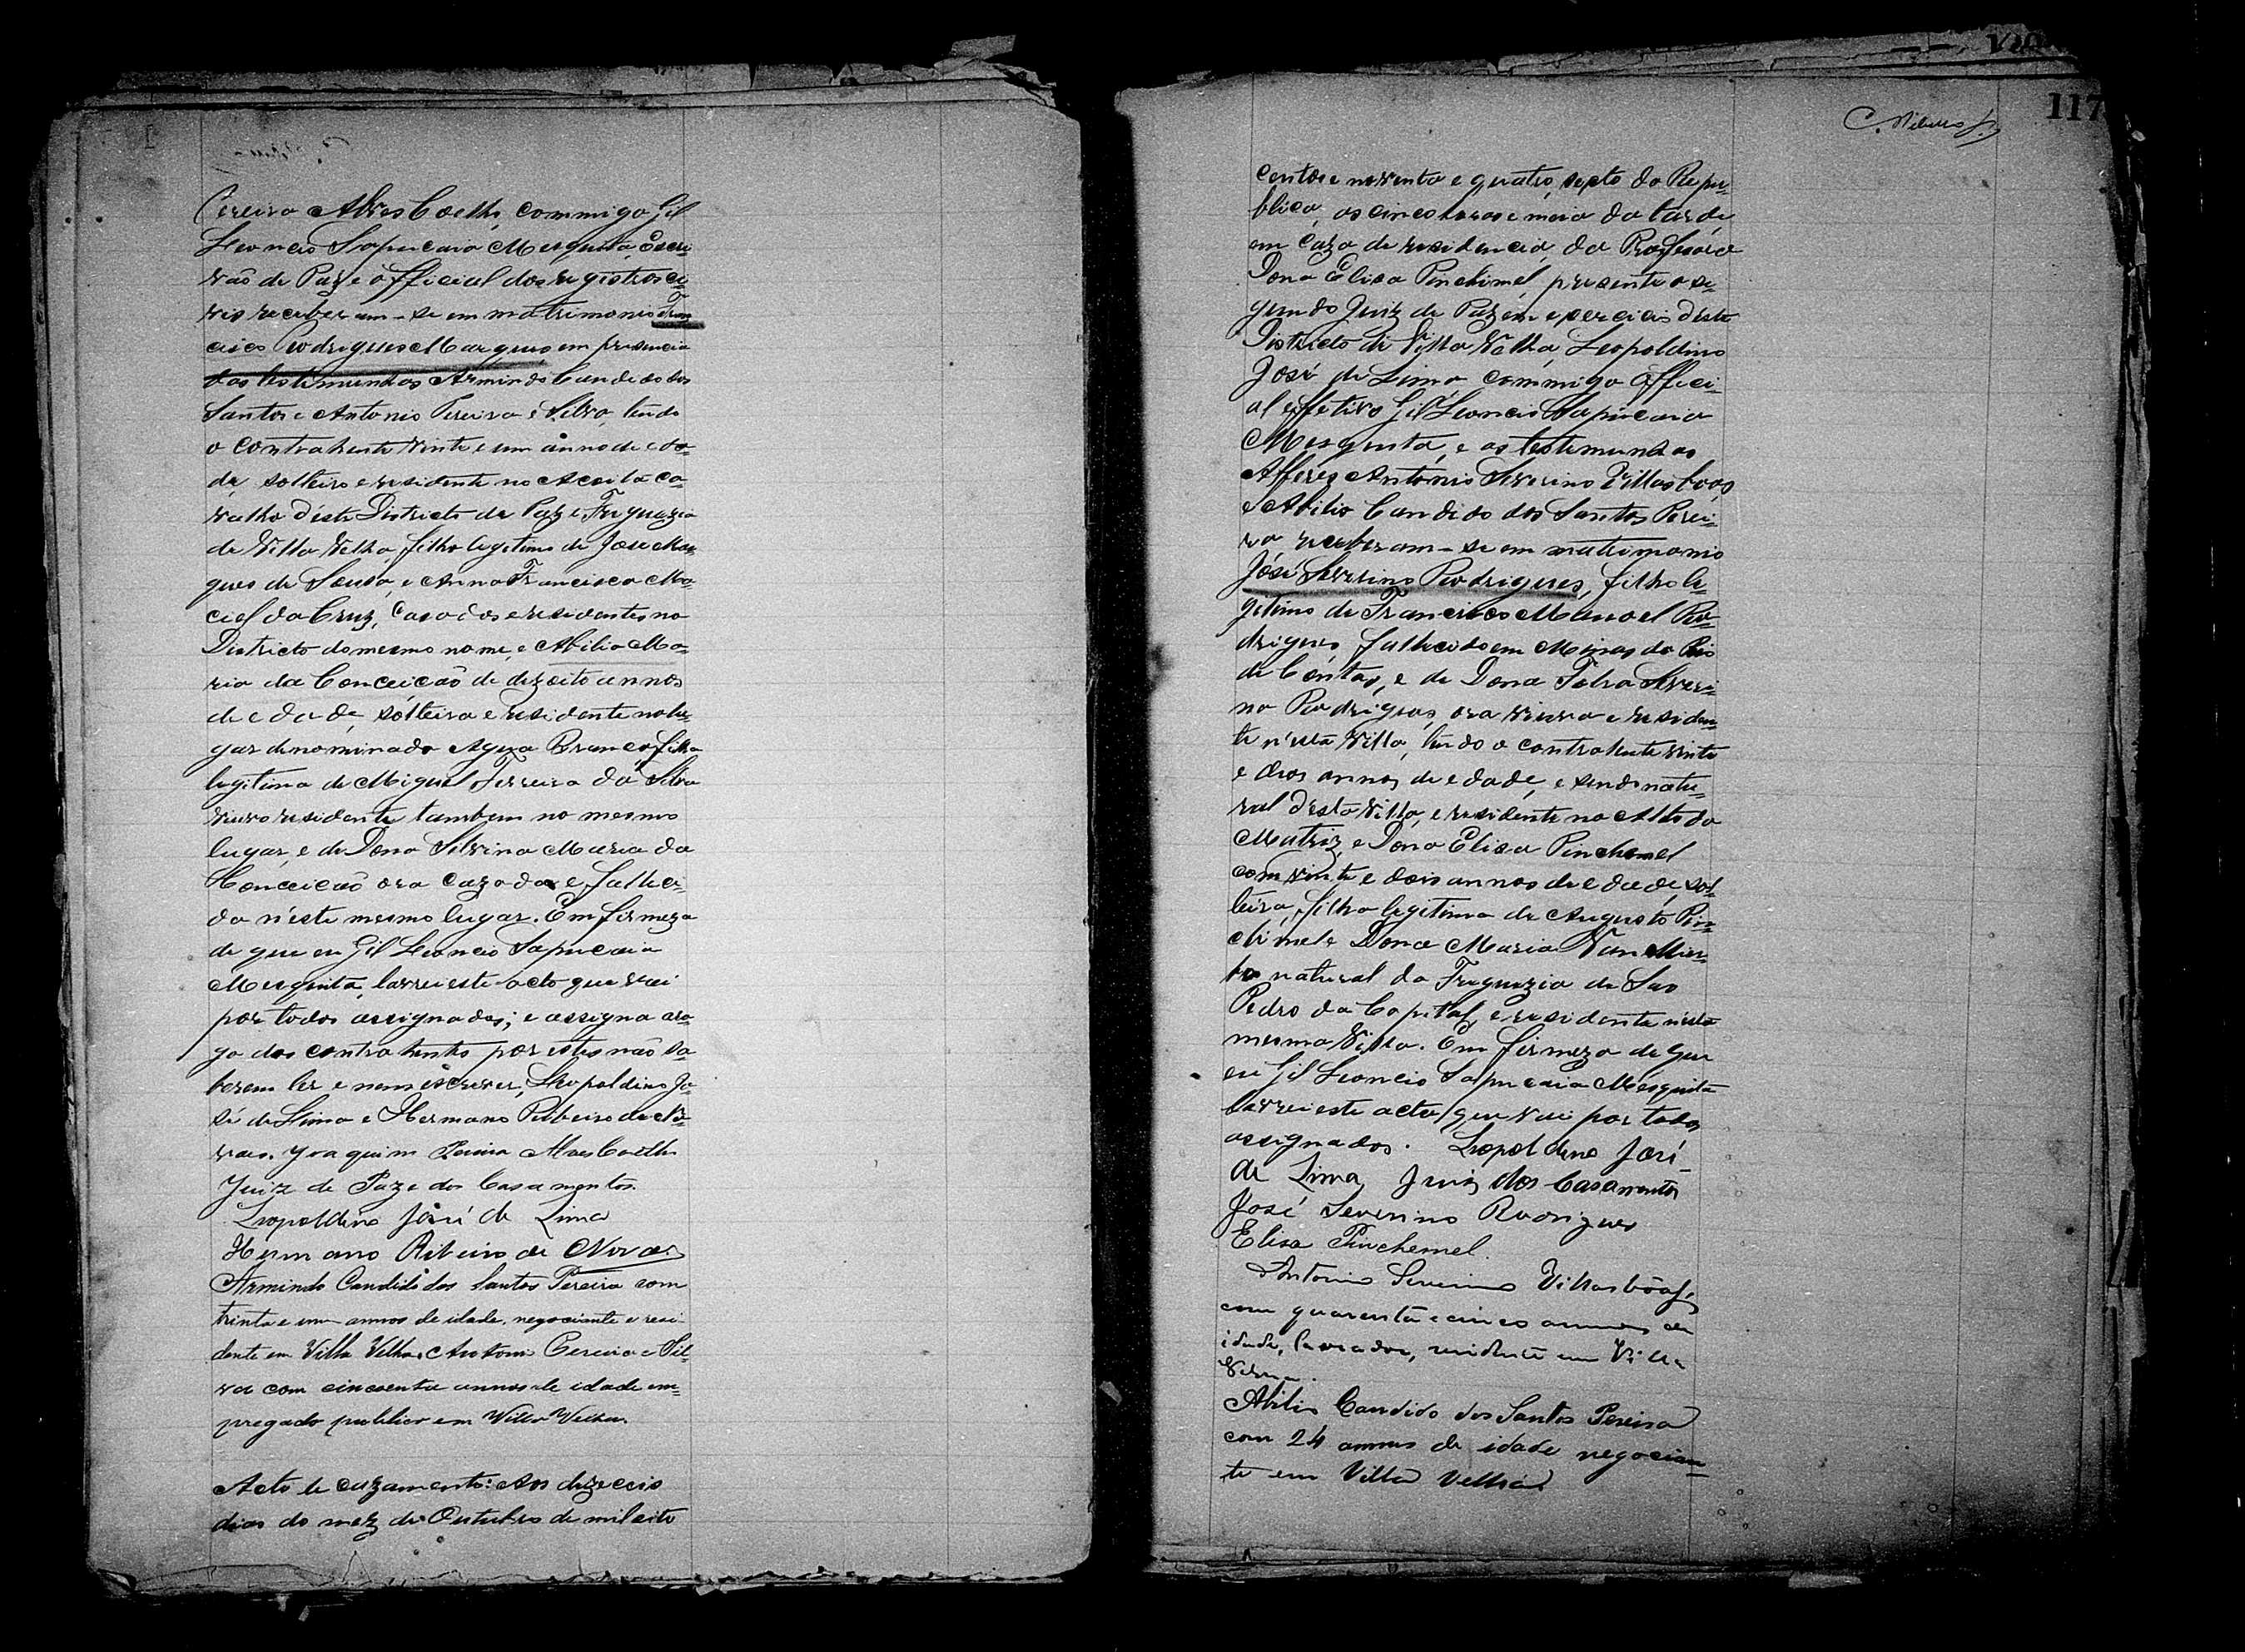 Pereira Alves Coelho, commigo Gil
Leoncio Sapucaia Mesquita, Escri-
vão de Paz e official dos registros ci-
vis receberam-se em matrimonio Fran
cisco Rodrigues Marques em presencia
das testimunhas Armindo Candido dos
Santos e Antonio Pereira e Silva, tendo
o contrahente vinte e um anno de eda-
de, solteiro e residente no
d'este Districto de Paz e Freguezia
de Villa Velha, filho legitimo de José Mar
ques de Sousa, e Anna Francisca Ma-
ciel da Cruz, casados e residentes no
Districto do mesmo nome, e Abilia Ma-
ria da Conceicão de dezoito annos
de edade, solteira e residente no lu-
gar denominado Agua Branca, filha
legitima de Miguel Ferreira da Silva
viuvo residente tambem no mesmo
lugar, e de Dona Silvina Maria da
Conceicão ora cazada e falleci-
da n'este mesmo lugar. Em firmeza
de que eu Gil Leoncio Sapucaia
Mesquita, lavrei este acto que vai
por todos assignados; e assigna aro-
go dos contrahentes por estes não sa-
berem ler e nem escrever, Leopoldino Jo-
sé de Lima e Hermano Ribeiro de No-
vaes. Joaquim Pereira Alves Coelho
Juiz de Paz e dos Casamentos.
Leopoldino José de Lima
Hermano Ribeiro de Novaes
Armindo Candido dos Santos Pereira com
trinta e um annos de idade, negociante e resi-
dente em Villa Velha. Antonio Pereira e Sil-
va com cincoenta annos de idade em-
pregado publico em Villa Velha
Acto de cazamento: Aos dezeceis
dias do mez de Outubro de mil oito
C. Ribeiro Jr.
117
centos e noventa e quatro, sexto da Repu-
blica, as cinco horas e meia da tarde
em caza de residencia da Professora
Dona Elisa Pinchimel, presente o se-
gundo Juiz de Paz em exercicio deste
Districto de Villa Velha, Leopoldino
José de Lima commigo Offici-
al effetivo Gil Leoncio Sapucaia
Mesquita, e as testimunhas
Alferes Antonio Severino Villasboas
e Abilio Candido dos Santos Perei-
ra receberam-se em matrimonio
José Severino Rodrigues, filho le-
gitimo de Francisco Manoel Ro-
drigues, fallecido em Minas do Rio
de Contas, e de Dona Severi-
na Rodrigues, ora viuva e residen-
te n'esta Villa, tendo o contrahente vinte
e dois annos de edade, e sendo natu-
ral desta Villa, e residente no Alto da
Matriz, e Dona Elisa Pinchemel
com vinte e dois annos de edade, sol-
teira, filha legitima de Augusto Pin-
chimel e Dona Maria
natural da Freguezia de Sao
Pedro da Capital, e residente nesta
mesma Villa. Em firmeza de que
eu Gil Leoncio Sapucaia Mesquita
lavrei este acto, que vai por todos
assignados. Leopoldino José
de Lima, Juiz dos Casamentos
José Severino Rodrigues
Elisa Pinchemel.
Antonio Severino Villasbôas,
com quarenta e cinco annos de
idade, lavrador, residente em Villa
Velha.
Abilio Candido dos Santos Pereira
com 24 annos de idade negocian-
te em Villa Velha